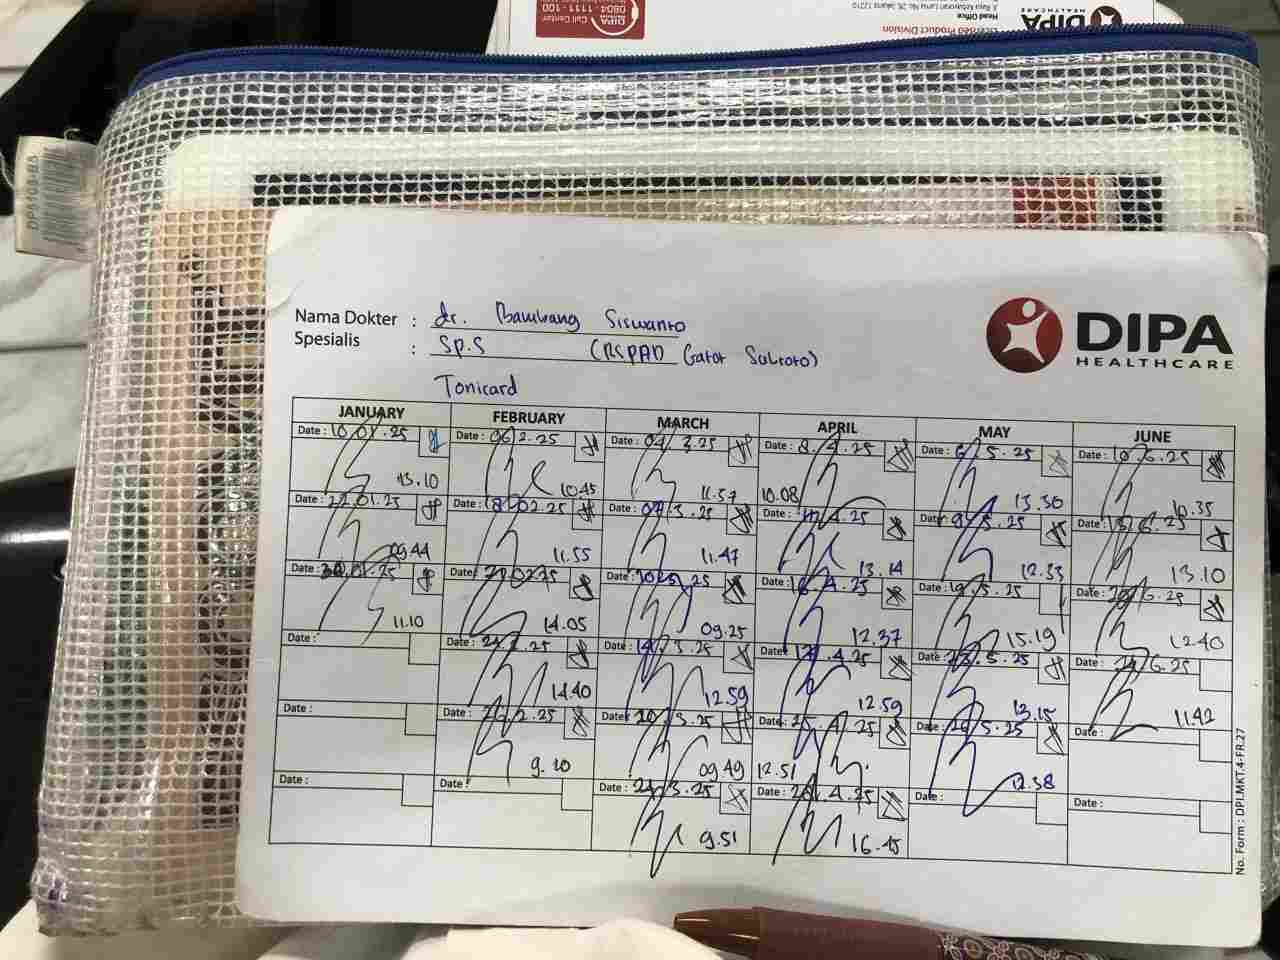 DIPA
HEALTHCARE
Licensed Product Division
Head Office
Call Center
0804 - 1111 - 100
DIPA
Nama Dokter : dr. Bambang Siswanto
Spesialis : Sp.S (RSPAD Gatot Subroto)
DIPA
HEALTHCARE
Tonicard
JANUARY FEBRUARY MARCH APRIL MAY JUNE
Date : 10.01.25 Date : 06.2.25 Date : 04.3.25 Date : 8.4.25 Date : 6.5.25 Date : 10.6.25
13.10 10.45 11.57 10.08 13.30 10.35
Date : 22.01.25 Date : 18.02.25 Date : 07.3.25 Date : 25 Date : 9.5.25 Date : 6.25
09.44 11.55 11.47 13.14 12.33 13.10
Date : 01.25 Date : 02.25 Date : 25 Date : 4.25 Date : 19.5.25 Date : 6.25
11.10 14.05 09.25 12.37 15.19 12.40
Date : Date : 2.25 Date : 3.25 Date : 4.25 Date : 5.25 Date : 6.25
14.40 12.59 12.59 13.15 11.42
Date : Date : 2.25 Date : 20.3.25 Date : 4.25 Date : 5.25 Date :
9.10 09.49 12.51 12.38
Date : Date : Date : 3.25 Date : 4.25 Date : Date :
9.51 16.45
No. Form : DPI.MKT.4-FR.27